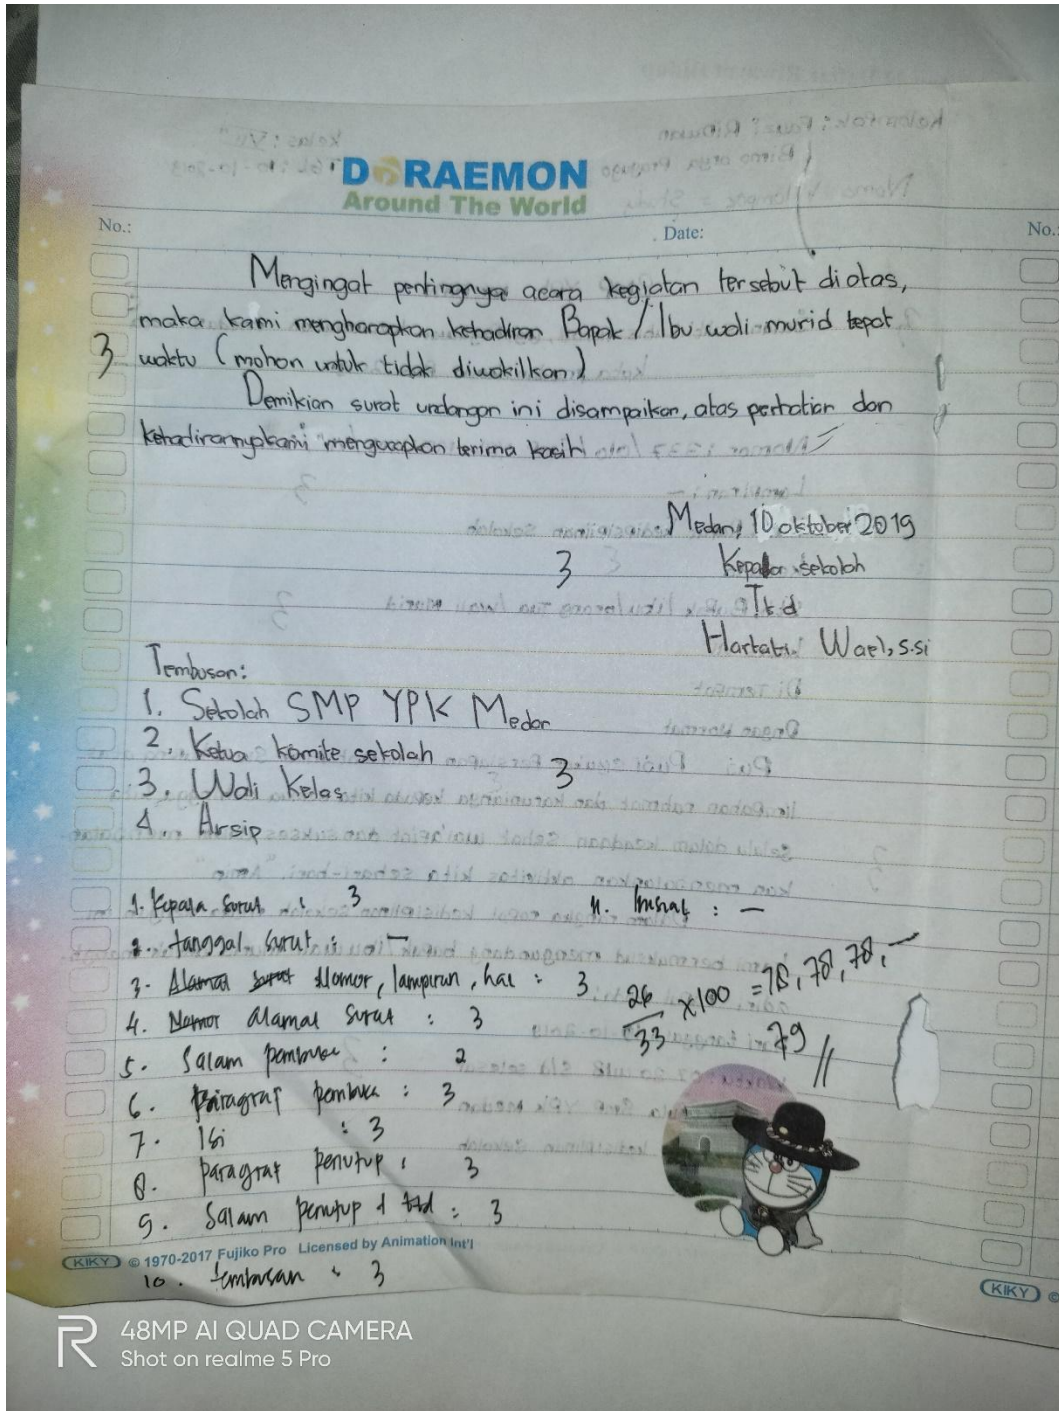 DORAEMON
Around The World
No.:
Date:
No.:
Mengingat pentingnya acara kegiatan tersebut diatas,
maka kami mengharapkan kehadiran Bapak / Ibu wali murid tepat
3 waktu (mohon untuk tidak diwakilkan)
Demikian surat undangan ini disampaikan, atas perhatian dan
kehadirannya kami mengucapkan terima kasih
Medan, 10 oktober 2019
3
Kepala sekolah
Ttd
Hartati Wael, S.si
Tembusan:
1. Sekolah SMP YPK Medan
2. Ketua komite sekolah
3. Wali Kelas
3
4. Arsip
1. Kepala surat : 3
11. : -
2. tanggal surat : -
3. Alamat surat Nomor, lampiran, hal : 3
26/33 x100 = 78,78,78,-
79 //
4. Nomor alamat surat : 3
5. Salam pembuka : 2
6. Paragraf pembuka : 3
7. Isi : 3
8. paragraf penutup : 3
9. Salam penutup & ttd : 3
KIKY © 1970-2017 Fujiko Pro Licensed by Animation Int'l
10. tembusan : 3
KIKY ©
48MP AI QUAD CAMERA
Shot on realme 5 Pro